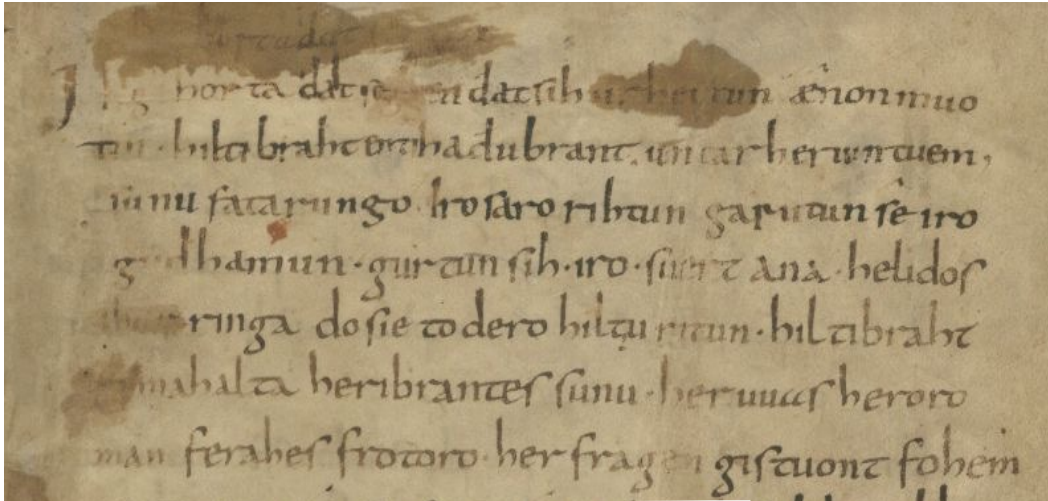 Ik gihorta đat seggen đat sih urhettun ænon muo
tin · hiltibraht enti hađubrant · untar heriun tuem,
sunu fatarungo · iro saro rihtun garutun sê iro
guđhamun · gurtun sih · iro · suert ana · helidos
ubar ringa do sie to dero hiltiu ritun · hiltibraht
gimahalta heribrantes sunu · her uuas heroro
man ferahes frotoro · her fragen gistuont fohem